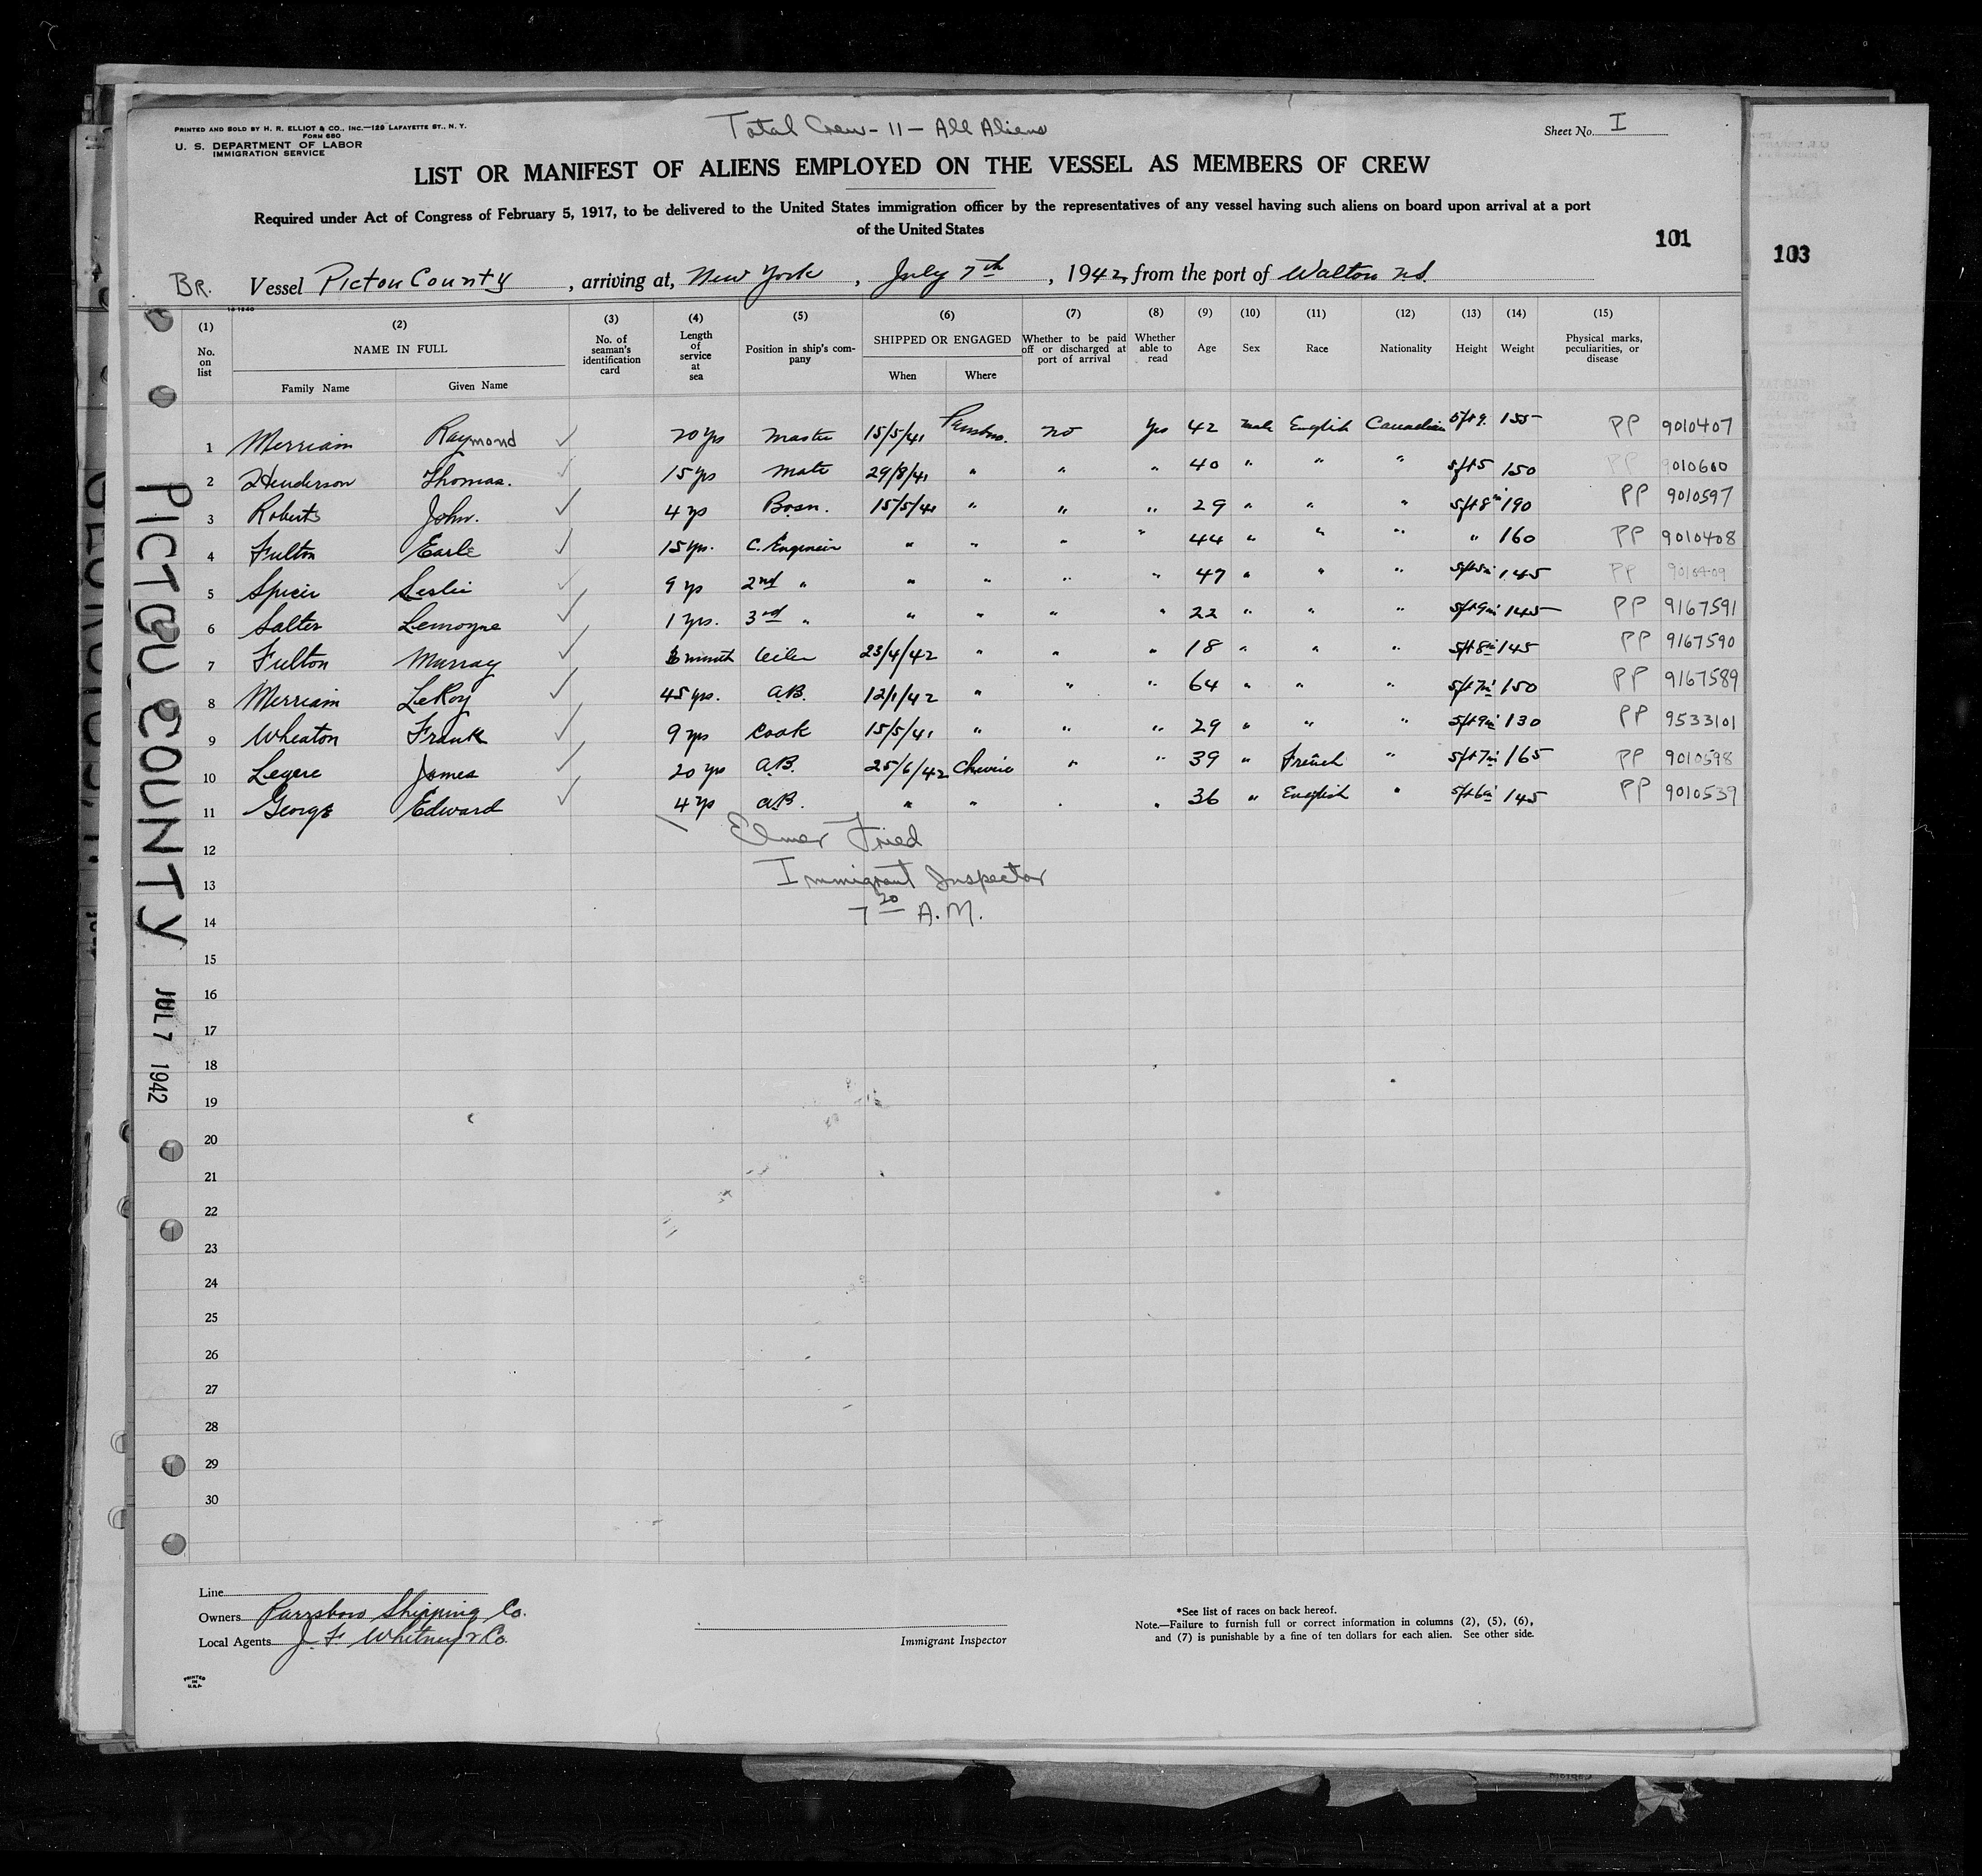 PRINTED AND SOLD BY H. R. ELLIOT & CO., INC.—129 LAFAYETTE ST., N. Y.
FORM 680
U. S. DEPARTMENT OF LABOR
IMMIGRATION SERVICE
Total Crew - 11 - All Aliens
Sheet No. I
LIST OR MANIFEST OF ALIENS EMPLOYED ON THE VESSEL AS MEMBERS OF CREW
Required under Act of Congress of February 5, 1917, to be delivered to the United States immigration officer by the representatives of any vessel having such aliens on board upon arrival at a port
of the United States
101
103
BR. Vessel Pictou County, arriving at, New York, July 7th, 1942, from the port of Walton N.S.
(1) No. on list
(2) NAME IN FULL Family Name Given Name
(3) No. of seaman's identification card
(4) Length of service at sea
(5) Position in ship's company
(6) SHIPPED OR ENGAGED When Where
(7) Whether to be paid off or discharged at port of arrival
(8) Whether able to read
(9) Age
(10) Sex
(11) Race
(12) Nationality
(13) Height
(14) Weight
(15) Physical marks, peculiarities, or disease
1 Merriam Raymond ✓ 20 yrs Master 15/5/41 no Yes 42 male English Canadian 5ft 9. 155 PP 9010407
2 Henderson Thomas. ✓ 15 yrs Mate 29/8/41 " " " 40 " " " 5ft 5 150 PP 9010600
3 Roberts John. ✓ 4 yrs Bosn. 15/5/41 " " " 29 " " " 5ft 8in 190 PP 9010597
4 Fulton Earle ✓ 15 yrs. C. Engineer " " " " 44 " " " " 160 PP 9010408
5 Spicer Leslie ✓ 9 yrs 2nd " " " " " 47 " " " 145 PP
6 Salter Lemoyne ✓ 1 yrs. 3rd " " " " " 22 " " " 5ft 9in 145 PP 9167591
7 Fulton Murray ✓ month Oiler 23/4/42 " " " 18 " " " 5ft 8in 145 PP 9167590
8 Merriam LeRoy ✓ 45 yrs. A.B. 12/1/42 " " " 64 " " " 5ft 7in 150 PP 9167589
9 Wheaton Frank ✓ 9 yrs Cook 15/5/41 " " " 29 " " " 5ft 9in 130 PP 9533101
10 Legere James ✓ 20 yrs A.B. 25/6/42 Cheverie " " 39 " French " 5ft 7in 165 PP 9010598
11 George Edward ✓ 4 yrs A.B. " " " " 36 " English " 5ft 6in 145 PP 9010539
12
13
14
Elmer Fried
Immigrant Inspector
7 20 A.M.
15
16
17
18
19
20
21
22
23
24
25
26
27
28
29
30
PICTOU COUNTY
JUL 7 1942
Line
Owners Parrsboro Shipping Co.
Local Agents J F Whitney & Co.
Immigrant Inspector
*See list of races on back hereof.
Note.—Failure to furnish full or correct information in columns (2), (5), (6),
and (7) is punishable by a fine of ten dollars for each alien. See other side.
PRINTED
IN
U.S.A.